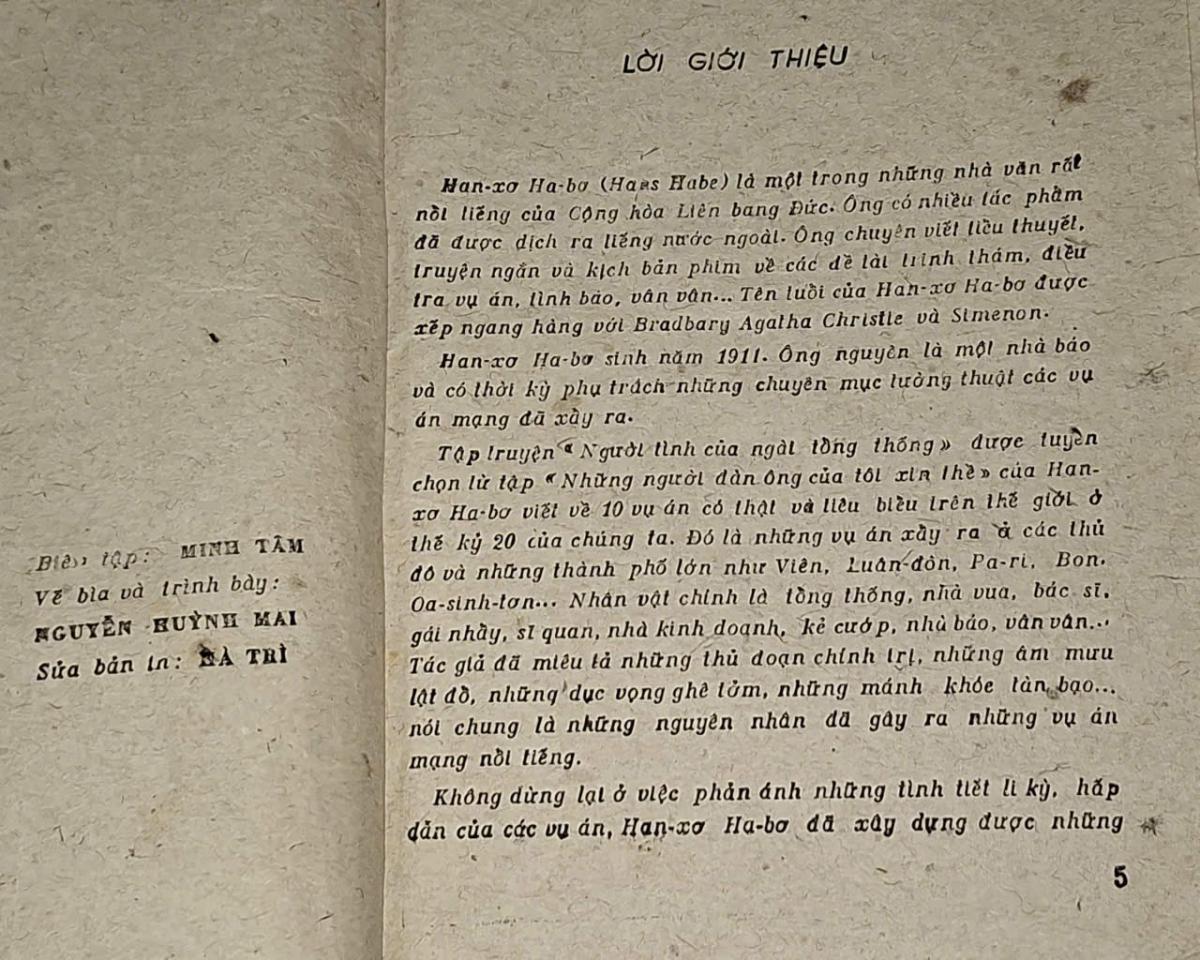 Biên tập: MINH TÂM
Vẽ bìa và trình bày:
NGUYỄN HUỲNH MAI
Sửa bản in: BÀ TRÌ
LỜI GIỚI THIỆU
Han-xơ Ha-bơ (Hans Habe) là một trong những nhà văn rất
nổi tiếng của Cộng hòa Liên bang Đức. Ông có nhiều tác phẩm
đã được dịch ra tiếng nước ngoài. Ông chuyên viết tiểu thuyết,
truyện ngắn và kịch bản phim về các đề tài trinh thám, điều
tra vụ án, tình báo, vân vân... Tên tuổi của Han-xơ Ha-bơ được
xếp ngang hàng với Bradbary Agatha Christie và Simenon.
Han-xơ Ha-bơ sinh năm 1911. Ông nguyên là một nhà báo
và có thời kỳ phụ trách những chuyên mục tường thuật các vụ
án mạng đã xầy ra.
Tập truyện «Người tình của ngài tổng thống» được tuyển
chọn từ tập «Những người đàn ông của tôi xin thề» của Han-
xơ Ha-bơ viết về 10 vụ án có thật và tiêu biểu trên thế giới ở
thế kỷ 20 của chúng ta. Đó là những vụ án xầy ra ở các thủ
đô và những thành phố lớn như Viên, Luân-đôn, Pa-ri, Bon.
Oa-sinh-tơn... Nhân vật chính là tổng thống, nhà vua, bác sĩ,
gái nhầy, sĩ quan, nhà kinh doanh, kẻ cướp, nhà báo, vân vân...
Tác giả đã miêu tả những thủ đoạn chính trị, những âm mưu
lật đổ, những dục vọng ghê tởm, những mánh khóe tàn bạo...
nói chung là những nguyên nhân đã gây ra những vụ án
mạng nổi tiếng.
Không dừng lại ở việc phản ánh những tình tiết li kỳ, hấp
dẫn của các vụ án, Han-xơ Ha-bơ đã xây dựng được những
5